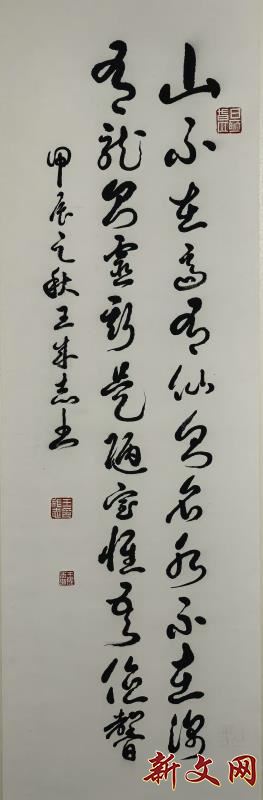 山不在高有仙則名水不在深
有龍則靈斯是陋室惟吾德馨
甲辰之秋王成志书
新文网